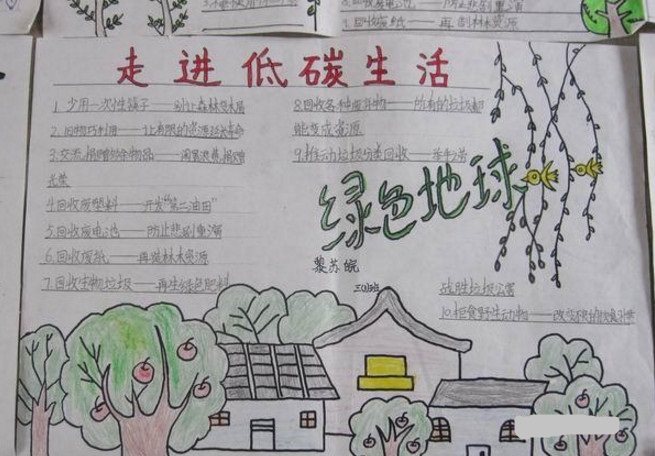 回收废纸——再创林木资源
走进低碳生活
1. 少用一次性筷子——别让森林变木屑
2. 旧物巧利用——让有限的资源延长寿命
3. 交流捐赠多余物品——闲置浪费,捐赠
光荣
4. 回收废塑料——开发“第二油田”
5. 回收废电池——防止悲剧重演
6. 回收废纸——再造林木资源
7. 回收生物垃圾——再生绿色肥料
8. 回收各种废弃物——所有的垃圾都
能变成资源
9. 推动垃圾分类回收——举手之劳
绿色地球
黎苏皖
战胜垃圾公害
10. 拒食野生动物——改变不良饮食习惯